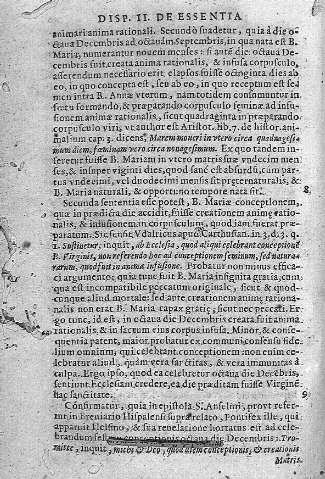 DISP. II. DE ESSENTIA
animari anima rationali. Secundò suadetur, quia à die o-
ctaua Decembris ad octauam Septembris, in qua nata est B.
Maria, numerantur nouem menses: si autē die octaua De-
cembris fuit creata anima rationalis, & infusa corpusculo,
asserendum necessario erit elapsos fuisse octoginta dies ab
eo, in quo conceptus est, seu ab eo, in quo receptum est se
men intra B. Annæ vterum, nam totidem consummuntur in
fœtu formando, & præparando corpusculo feminæ ad infu-
sionem animæ rationalis, sicut quadraginta in præparando
corpusculo viri, vt author est Aristot. lib. 7. de histor. ani-
malium cap. 3. dicens, Marem moueri in vtero circa quadrages-
mum diem, fæminam vero circa nonagesimum. Ex quo tandem in-
ferretur fuisse B. Mariam in vtero matris suæ vndecim men
ses, & insuper viginti dies, quod sanè est absurdum, cum par
tus vndecimi, vel duodecimi mensis sit præternaturalis, &
B. Maria naturali, & opportuno tempore nata sit.
8
Secunda sententia esse potest, B. Mariæ conceptionem,
quæ in prædicta die accidit, fuisse creationem animę ratio-
nalis, & infusionem in corpusculum, quod iam fuerat præ-
paratum. Sic sensit Vdalricus apud Carthusian. in 3. d. 3. q.
1. Sustinetur, inquit, ab Ecclesia, quod aliqui celebrant conceptionē
B. Virginis, non referendo hoc ad conceptionem seminum, sed natura-
rum, quod fuit in animæ infusione. Probatur non minus effica-
ci argumento; quia tunc fuit B. Maria insignita gratia, cum
qua est incompatibile peccatum originale, sicut & quod-
cunque aliud mortale: sed ante creationem animę rationa-
lis non erat B. Maria capax gratiæ, sicut nec peccati. Er-
go tunc, id est, in octaua die Decembris creata fuit anima
rationalis, & in sacrum eius corpus infusa. Minor, & conse-
quentia patent, maior probatur ex communi consensu fide-
lium omnium, qui celebrant conceptionem: non enim ce-
lebratur aliud, quàm vera sanctitas, & vera immunitas à
culpa. Ergo ipso, quod ea celebretur octaua die Decembris,
sentiunt Ecclesiam credere, ea die præditam fuisse Virginē
hac sanctitate.
9
Confirmatur, quia in epistola S. Anselmi, prout refer-
tur in breuiario Hispalensi supra relato, Pontifex ille, qui
apparuit Elsino, & sua reuelatione hortatus est ad cele-
brandum festum conceptionis octaua die Decembris: Pro-
mitte, inquit, mihi & Deo, quod diem conceptionis, & creationis
Matris